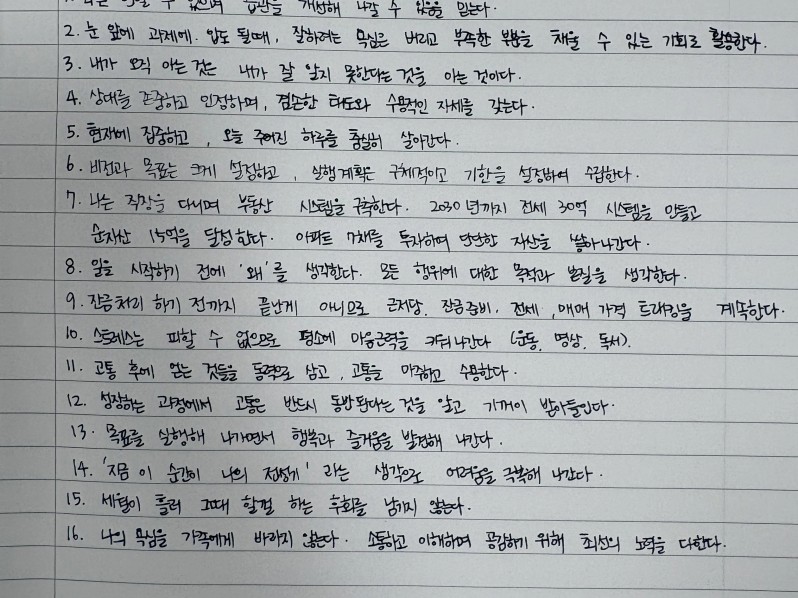 수 없으며 습관을 개선해 나갈 수 있음을 믿는다.
2. 눈 앞에 과제에 압도 될때, 잘하려는 욕심은 버리고 부족한 부분을 채울 수 있는 기회로 활용한다.
3. 내가 오직 아는 것은 내가 잘 알지 못한다는 것을 아는 것이다.
4. 상대를 존중하고 인정하며, 겸손한 태도와 수용적인 자세를 갖는다.
5. 현재에 집중하고, 오늘 주어진 하루를 충실히 살아간다.
6. 비전과 목표는 크게 설정하고, 실행계획은 구체적이고 기한을 설정하여 수립한다.
7. 나는 직장을 다니며 부동산 시스템을 구축한다. 2030년까지 전세 30억 시스템을 만들고
순자산 15억을 달성한다. 아파트 7채를 투자하며 단단한 자산을 쌓아나간다.
8. 일을 시작하기 전에 '왜'를 생각한다. 모든 행위에 대한 목적과 본질을 생각한다.
9. 잔금처리 하기 전까지 끝난게 아니므로 근저당, 잔금준비, 전세, 매매 가격 트래킹을 계속한다.
10. 스트레스는 피할 수 없으므로 평소에 마음근력을 키워나간다 (운동, 명상, 독서).
11. 고통 후에 얻는 것들을 동력으로 삼고, 고통을 마주하고 수용한다.
12. 성장하는 과정에서 고통은 반드시 동반된다는 것을 알고 기꺼이 받아들인다.
13. 목표를 실행해 나가면서 행복과 즐거움을 발견해 나간다.
14. '지금 이 순간이 나의 전성기' 라는 생각으로 어려움을 극복해 나간다.
15. 세월이 흘러 그때 할껄 하는 후회를 남기지 않는다.
16. 나의 욕심을 가족에게 바라지 않는다. 소통하고 이해하며 공감하기 위해 최선의 노력을 다한다.